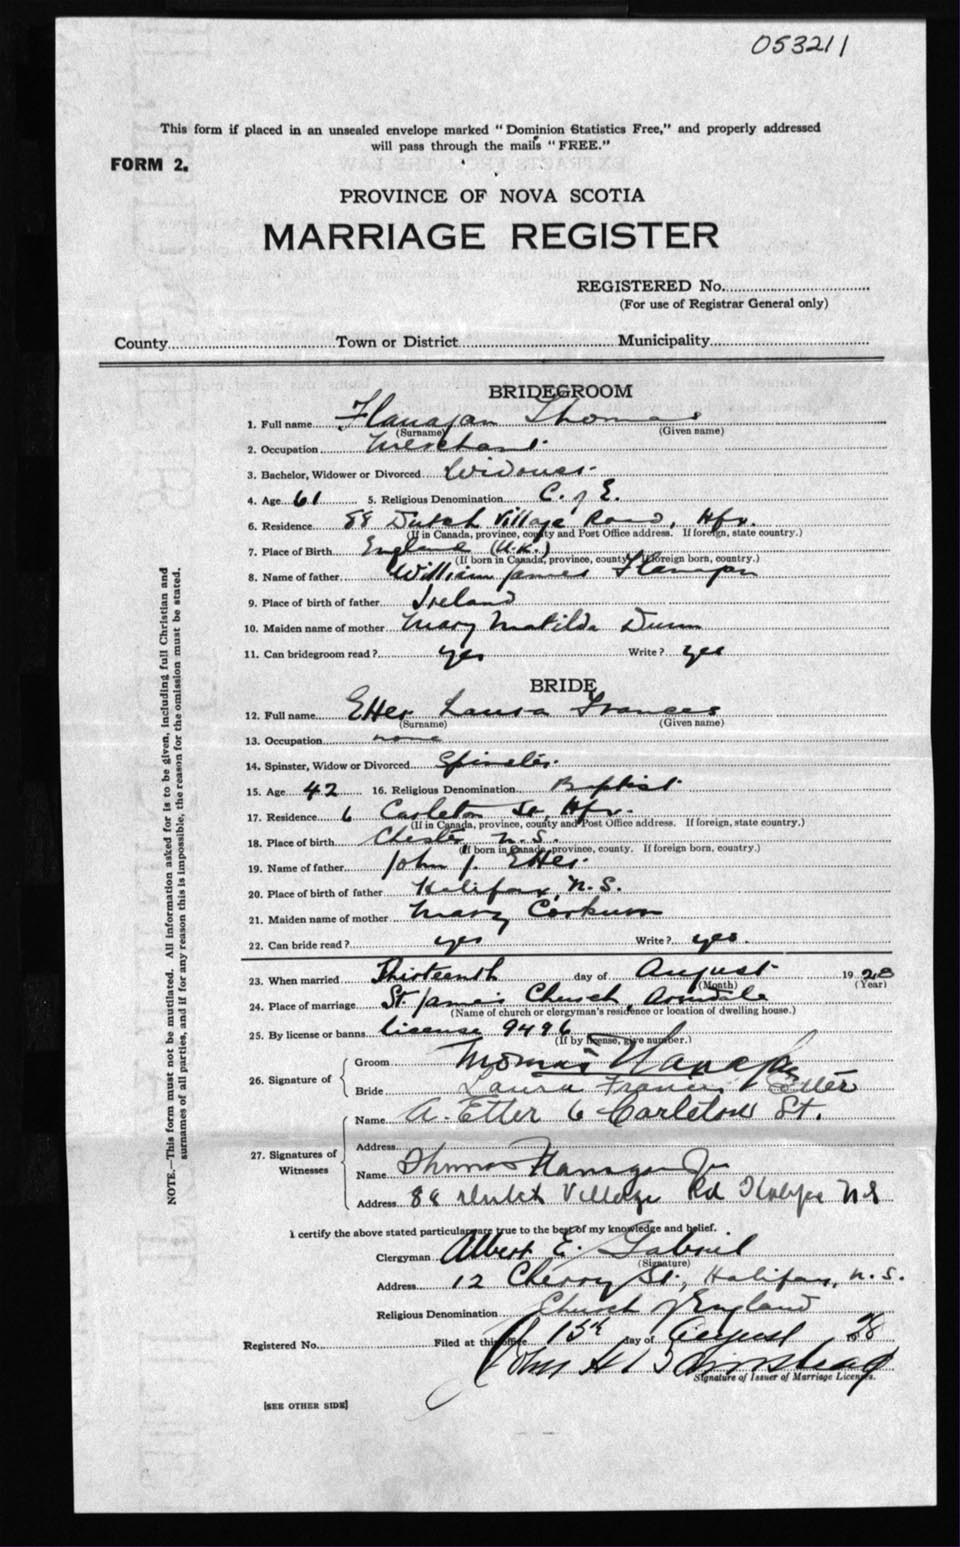 053211
This form if placed in an unsealed envelope marked "Dominion Statistics Free," and properly addressed
will pass through the mails "FREE."
FORM 2.
PROVINCE OF NOVA SCOTIA
MARRIAGE REGISTER
REGISTERED No.
(For use of Registrar General only)
County Town or District Municipality
BRIDEGROOM
1. Full name Flanagan Thomas
(Surname) (Given name)
2. Occupation Merchant
3. Bachelor, Widower or Divorced Widower
4. Age 61 5. Religious Denomination C. of E.
6. Residence 88 Dutch Village Road, Hfx.
(If in Canada, province, county and Post Office address. If foreign, state country.)
7. Place of Birth England (U.K.)
(If born in Canada, province, county. If foreign born, country.)
8. Name of father William James Flanagan
9. Place of birth of father Ireland
10. Maiden name of mother Mary Matilda Dunn
11. Can bridegroom read? yes Write? yes
BRIDE
12. Full name Etter Laura Frances
(Surname) (Given name)
13. Occupation none
14. Spinster, Widow or Divorced Spinster
15. Age 42 16. Religious Denomination Baptist
17. Residence 6 Carleton St, Hfx.
(If in Canada, province, county and Post Office address. If foreign, state country.)
18. Place of birth Chester, N.S.
(If born in Canada, province, county. If foreign born, country.)
19. Name of father John J. Etter
20. Place of birth of father Halifax, N.S.
21. Maiden name of mother Mary Corkum
22. Can bride read? yes Write? yes.
23. When married Thirteenth day of August 1928
(Month) (Year)
24. Place of marriage St James Church, Armdale
(Name of church or clergyman's residence or location of dwelling house.)
25. By license or banns license 9496
(If by license, give number.)
26. Signature of
Groom Thomas Flanagan
Bride Laura Frances Etter
27. Signatures of Witnesses
Name A. Etter 6 Carleton St.
Address
Name Thomas Flanagan Jr
Address 88 Dutch Village Rd Halifax NS
I certify the above stated particulars are true to the best of my knowledge and belief.
Clergyman Albert E. Gabriel
(Signature)
Address 12 Cherry St., Halifax, N.S.
Religious Denomination Church of England
Registered No. Filed at this office 15th day of August 28
John H
Signature of Issuer of Marriage Licenses.
[SEE OTHER SIDE]
NOTE.—This form must not be mutilated. All information asked for is to be given, including full Christian and
surnames of all parties, and if for any reason this is impossible, the reason for the omission must be stated.